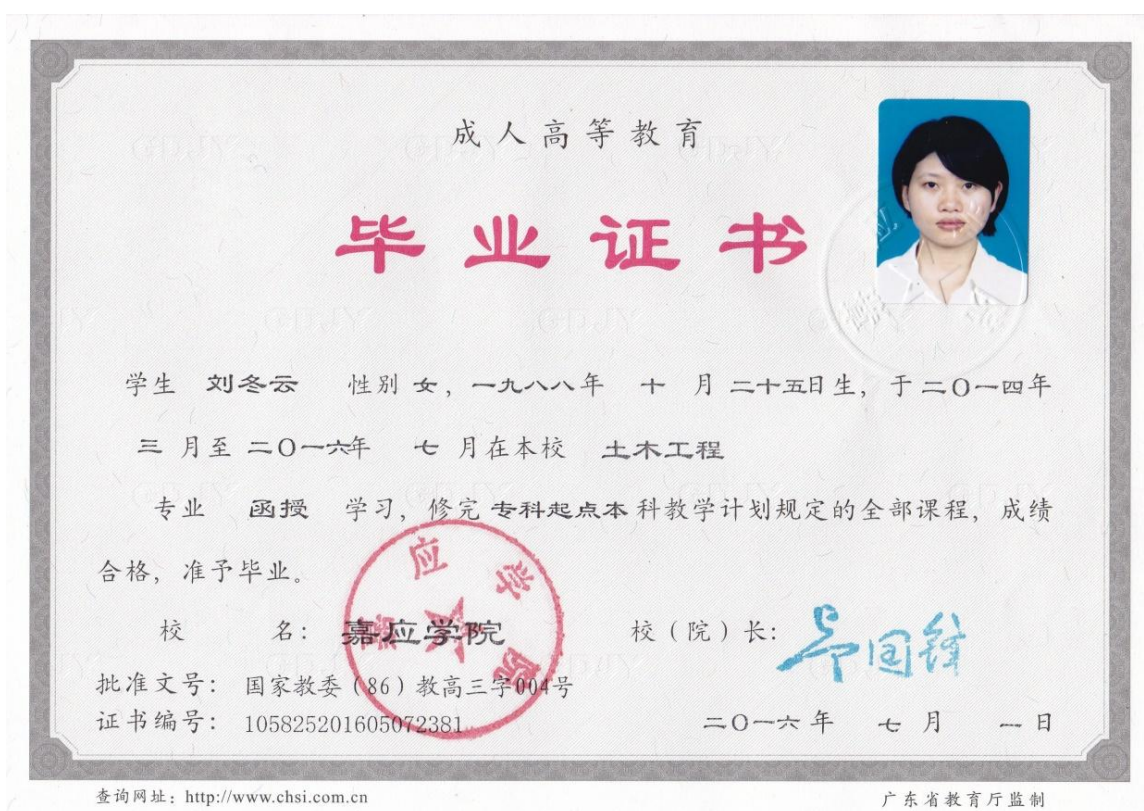 成人高等教育
毕业证书
学生 刘冬云 性别 女，一九八八年 十 月 二十五日生，于二〇一四年
三 月至 二〇一六年 七 月在本校 土木工程
专业 函授 学习，修完 专科起点本 科教学计划规定的全部课程，成绩
合格，准予毕业。
校 名：嘉应学院 校（院）长：
批准文号：国家教委（86）教高三字004号
证书编号：105825201605072381
二〇一六年 七 月 一 日
嘉应学院
查询网址：http://www.chsi.com.cn 广东省教育厅监制
GDJY